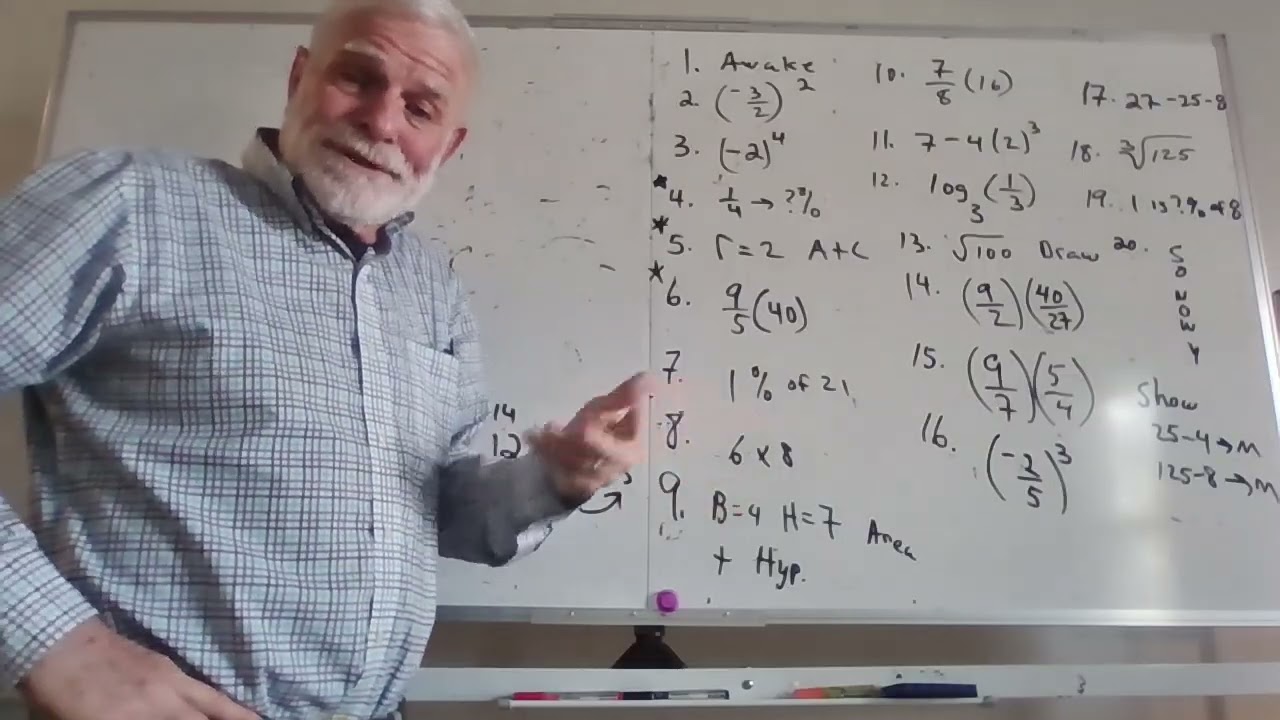 1. Awake
2. (-3/2)²
3. (-2)⁴
★4. 1/4 → ?%
★5. r=2 A+C
★6. 9/5(40)
7. 1% of 21
8. 6 x 8
9. B=4 H=7 Area
+ Hyp.
10. 7/8(16)
11. 7-4(2)³
12. log₃(1/3)
13. √100 Draw
14. (9/2)(40/27)
15. (9/7)(5/4)
16. (-2/5)³
17. 27-25-8
18. ³√125
19. 1 is ?% of 8
20.
S
O
H
O
W
Y
Show
25-4→m
125-8→m
14
12
3